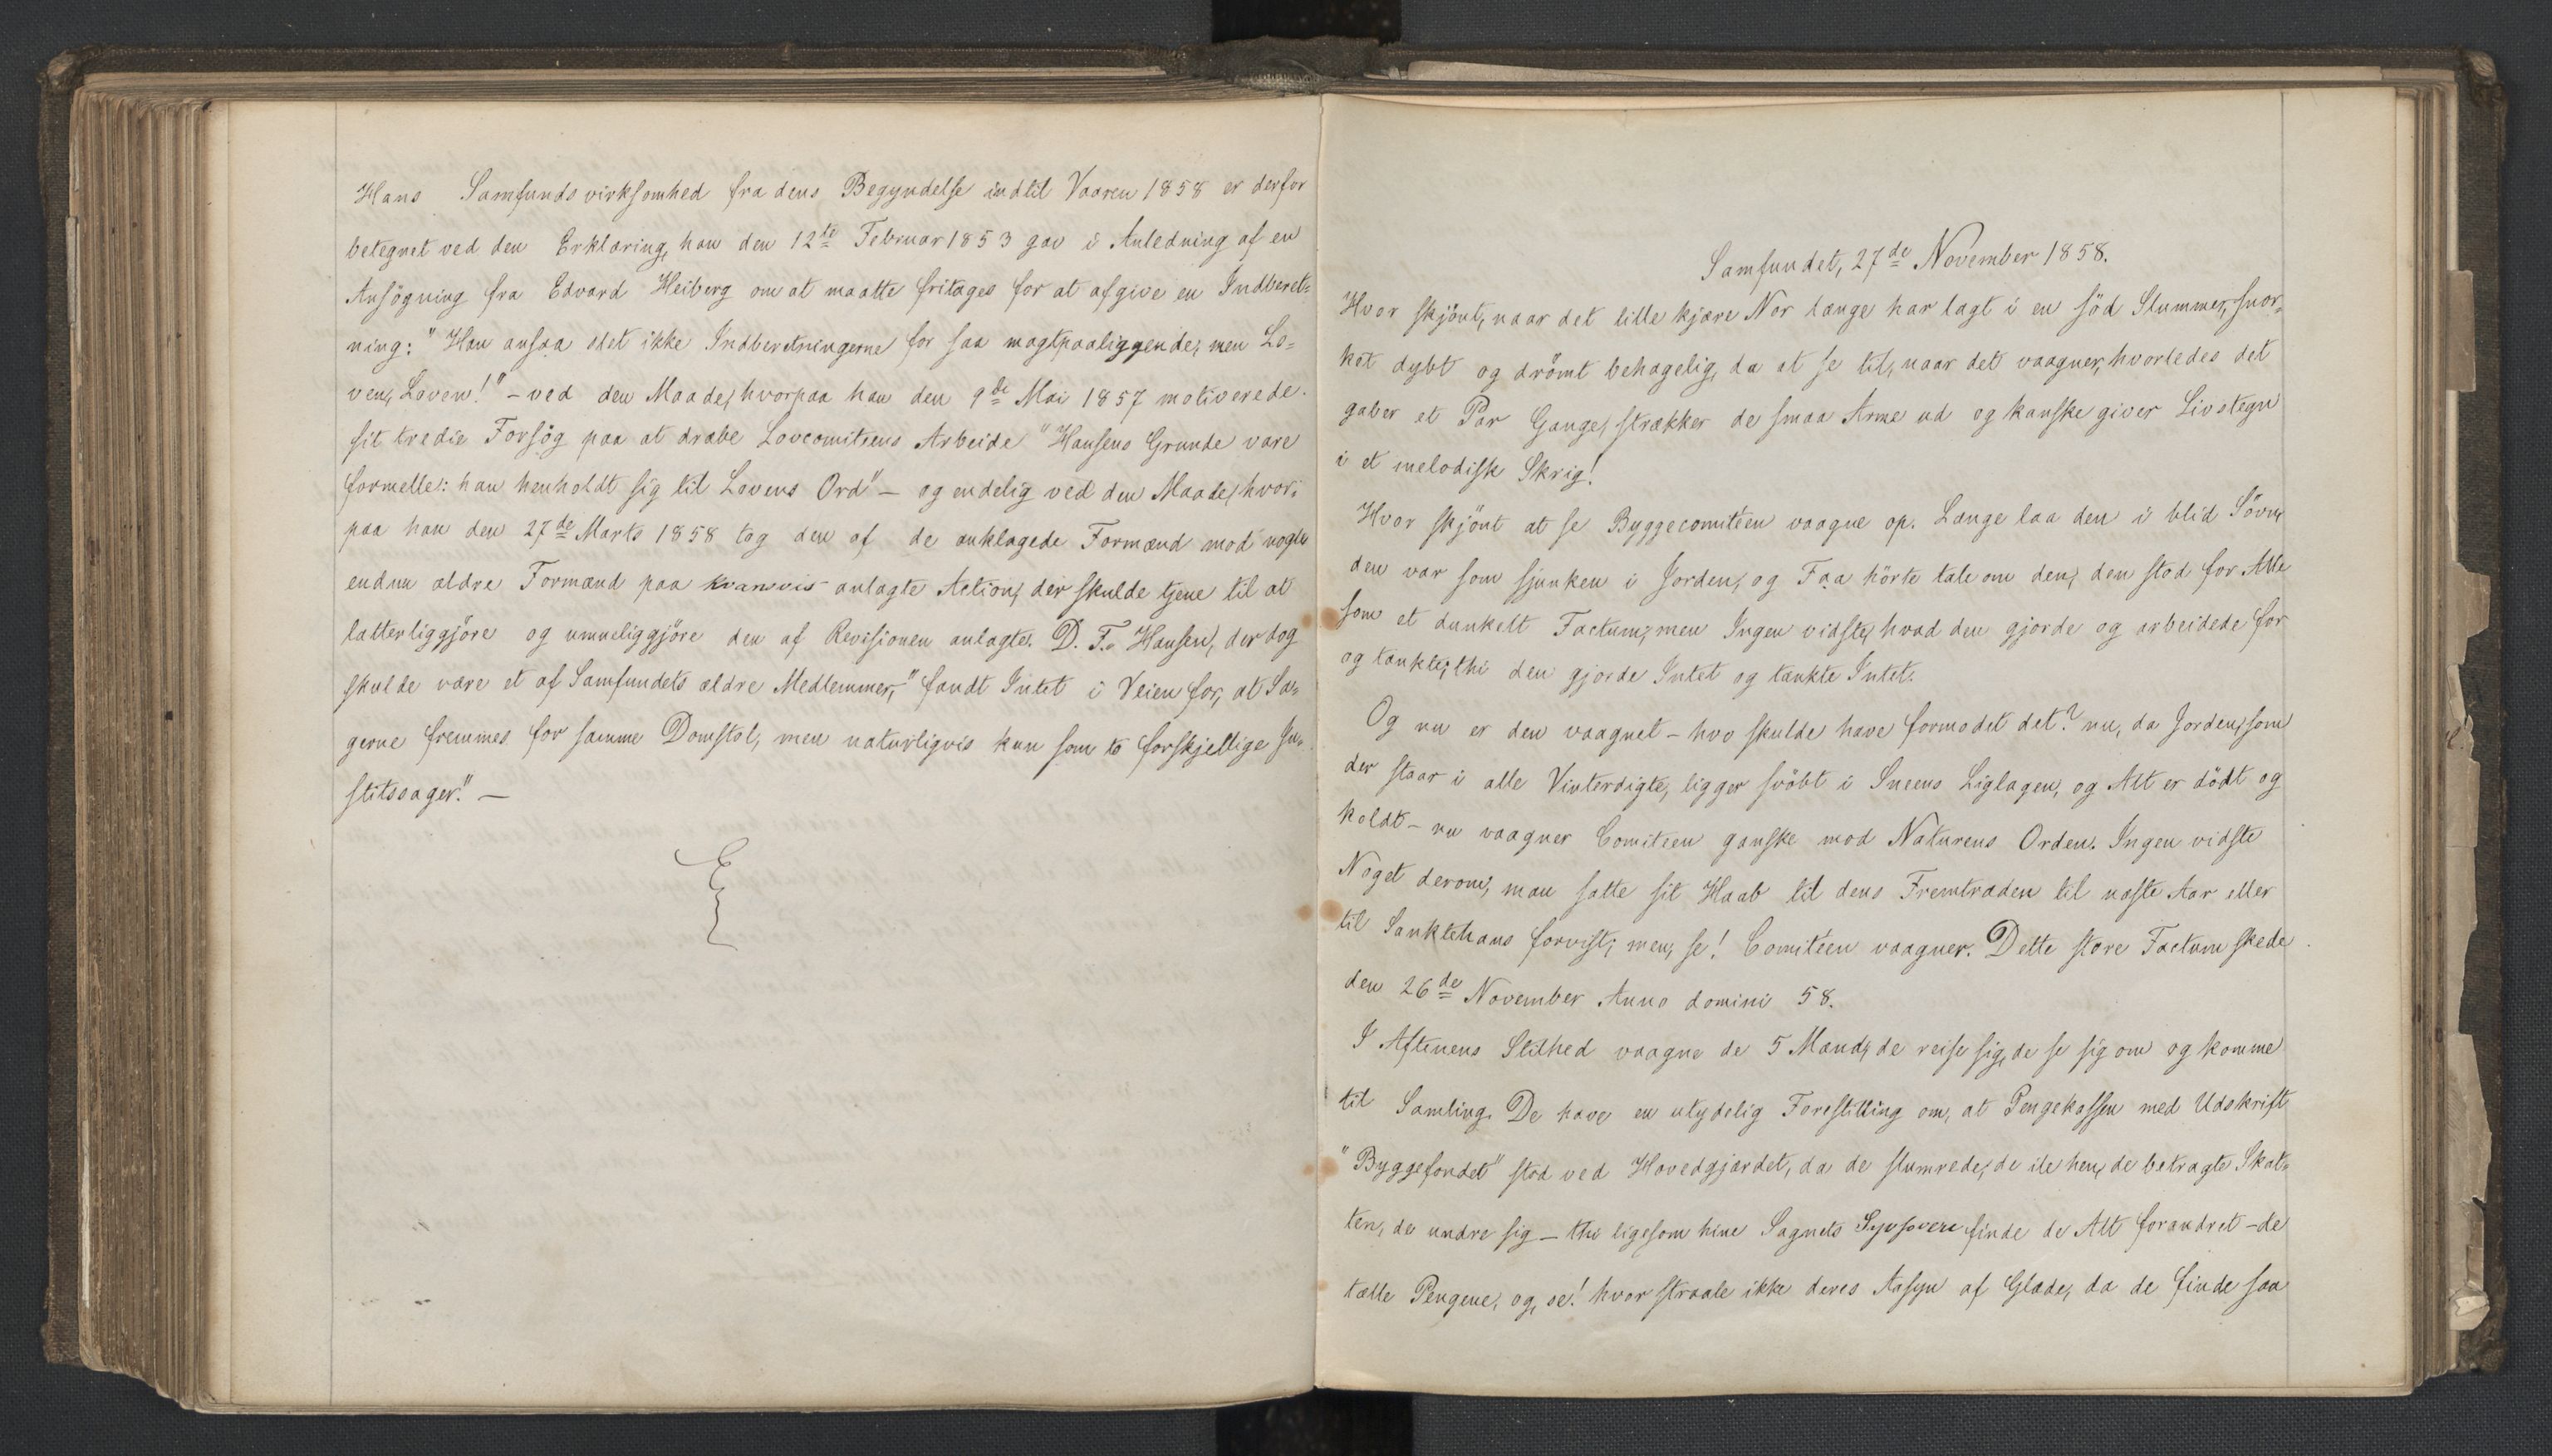 Hans Samfundsvirksomhed fra dens Begyndelse indtil Vaaren 1858 er derfor
betegnet ved den Erklæring, han den 12te Februar 1853 gav i Anledning af en
Ansögning fra Edvard Heiberg om at maatte fritages for at afgive en Indberet-
ning: "Han ansaa det ikke Indberetningerne for saa magtpaaliggende; men Lo-
ven, Loven!" – ved den Maade, hvorpaa han den 9de Mai 1857 motiverede
sit tredie Forsög paa at dræbe Lovcomiteens Arbeide "Hansens Grunde vare
formelle: han henholdt sig til Lovens Ord" – og endelig ved den Maade, hvor-
paa han den 27de Marts 1858 tog den af de anklagede Formænd mod nogle
endnu ældre Formænd paa kvansvis anlagte Action, der skulde tjene til at
latterliggjöre og umueliggjöre den af Revisionen anlagte. D. F. Hansen, der dog
skulde være et af Samfundets ældre Medlemmer, "fandt Intet i Veien for, at Sa-
gerne fremmes for samme Domstol, men naturligvis kun som to forskjellige Ju-
stitssager." –
Samfundet, 27de November 1858.
Hvor skjönt, naar det lille kjære Nor længe har lagt i en söd Slummer, snor-
ket dybt og drömt behagelig, da at se til, naar det vaagner, hvorledes det
gaber et Par Gange, strækker de smaa Arme ud og kanske giver Livstegn
i et melodisk Skrig!
Hvor skjönt at se Byggecomitéen vaagne op. Længe laa den i blid Sövn,
den var som sjunken i Jorden, og Faa hörte tale om den, den stod for Alle
som et dunkelt Factum, men Ingen vidste, hvad den gjorde og arbeidede for
og tænkte; thi den gjorde Intet og tænkte Intet.
Og nu er den vaagnet – hvo skulde have formodet det? nu, da Jorden, som
der staar i alle Vinterdigte, ligger svöbt i Sneens Liglagen, og Alt er dödt og
koldt – nu vaagner Comiteen ganske mod Naturens Orden. Ingen vidste
Noget derom; man satte sit Haab til dens Fremtræden til næste Aar eller
til Sanktehans forvist; men, se! Comitéen vaagner. Dette store Factum skede
den 26de November Anno domini 58.
I Aftenens Stilhed vaagne de 5 Mænd; de reise sig, de se sig om og komme
til Samling. De have en utydelig Forestilling om, at Pengekassen med Udskrift
"Byggefondet" stod ved Hovedgjærdet, da de slumrede, de ile hen, de betragte Skat-
ten, de undre sig – thi ligesom hine Sagnets Syvsovere finde de Alt forandret – de
tælle Pengene, og, se! hvor straale ikke deres Aasyn af Glæde, da de finde saa